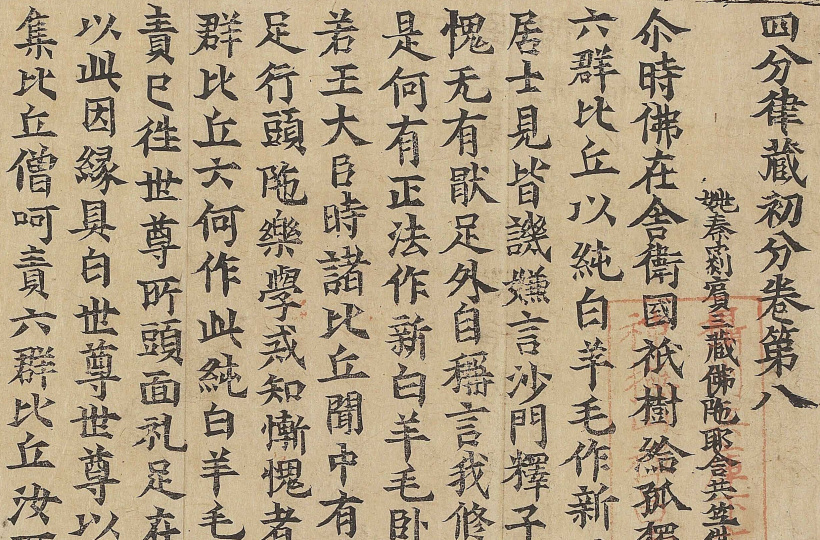 四分律藏初分卷第八
姚秦罽賓三藏佛陁耶舍共竺佛
尒時佛在舎衛國祇樹給孤獨
六群比丘以純白羊毛作新
居士見皆譏嫌言沙門釋子
愧无有猒足外自稱言我修
是何有正法作新白羊毛卧
若王大臣時諸比丘聞中有
足行頭陁樂學戒知慚愧者
群比丘云何作此純白羊毛
責已往世尊所頭面礼足在
以此因縁具白世尊世尊以
集比丘僧呵責六群比丘汝